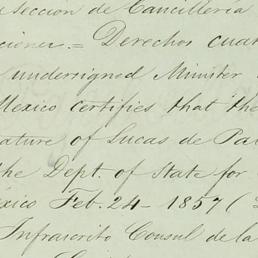 Seccion de Cancillería
= Derechos cuat
undersigned Minister
Mexico certifies that the
ature of Lucas de Pa
the Dept. of State for
xico Feb. 24 - 1857 (
Infrascrito Consul de la